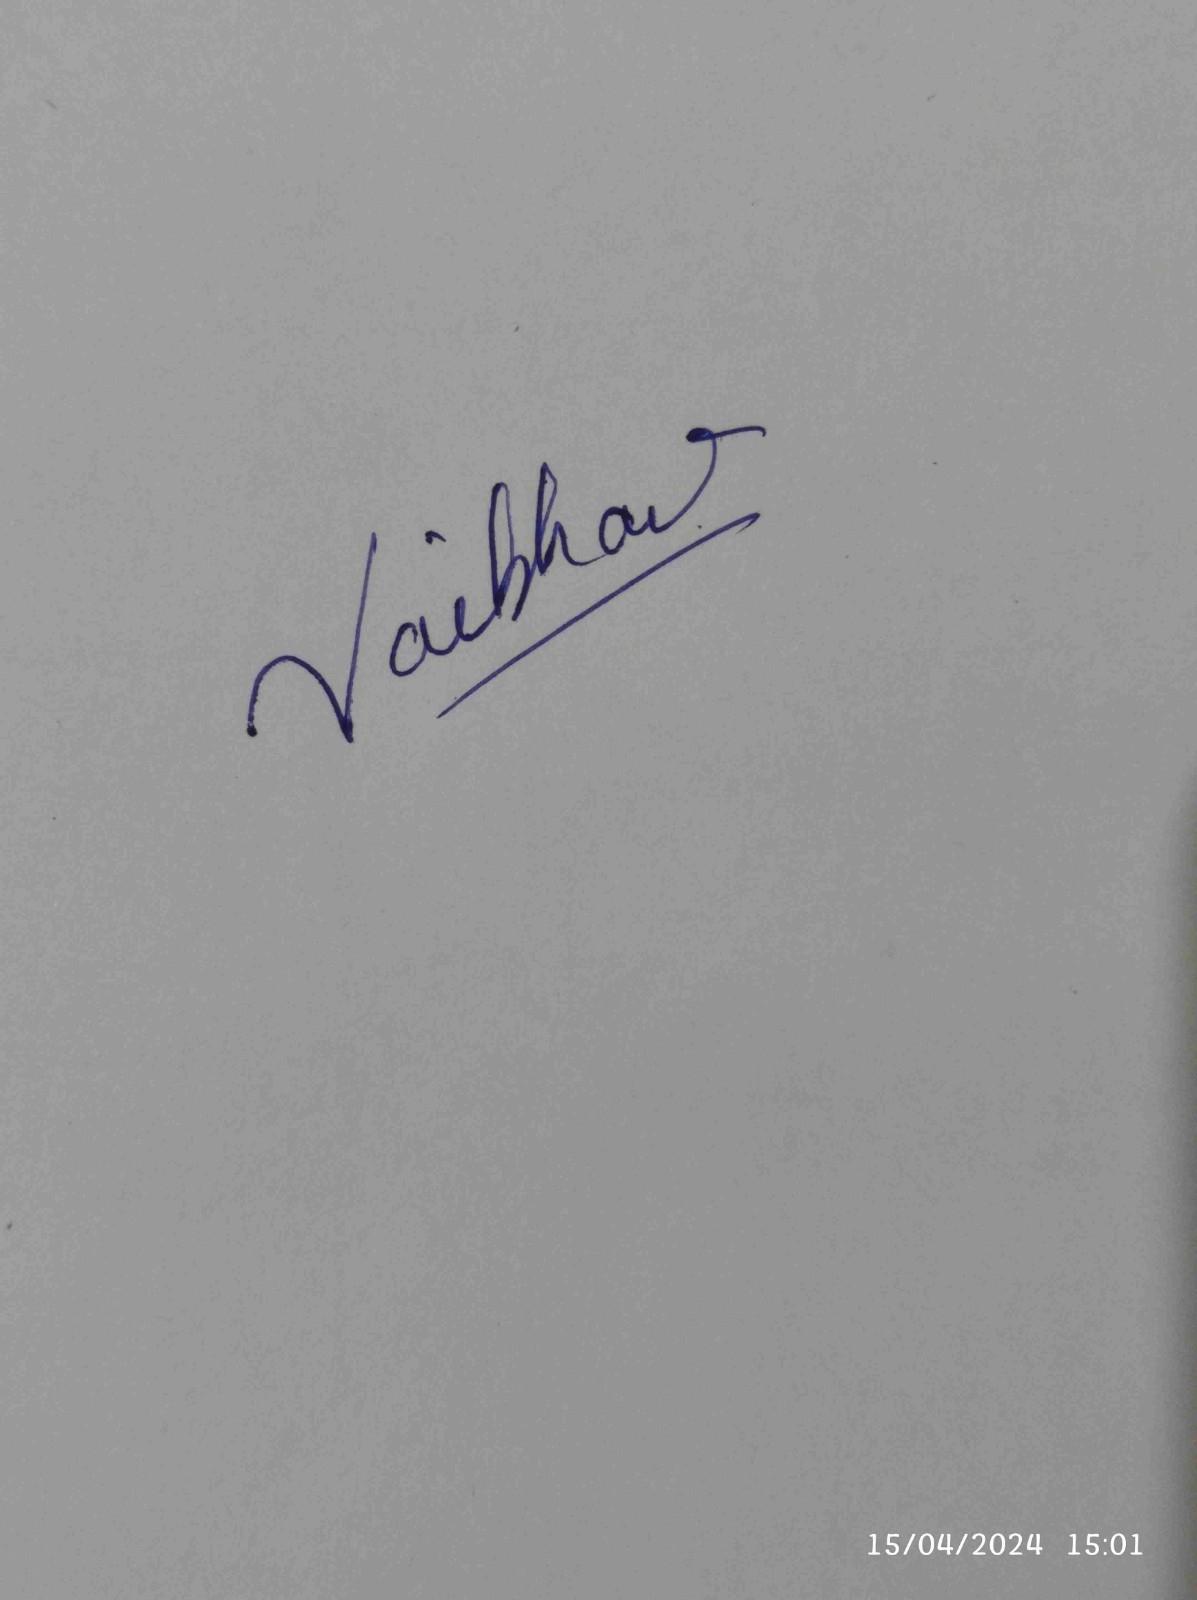 Vaibhav
15/04/2024 15:01